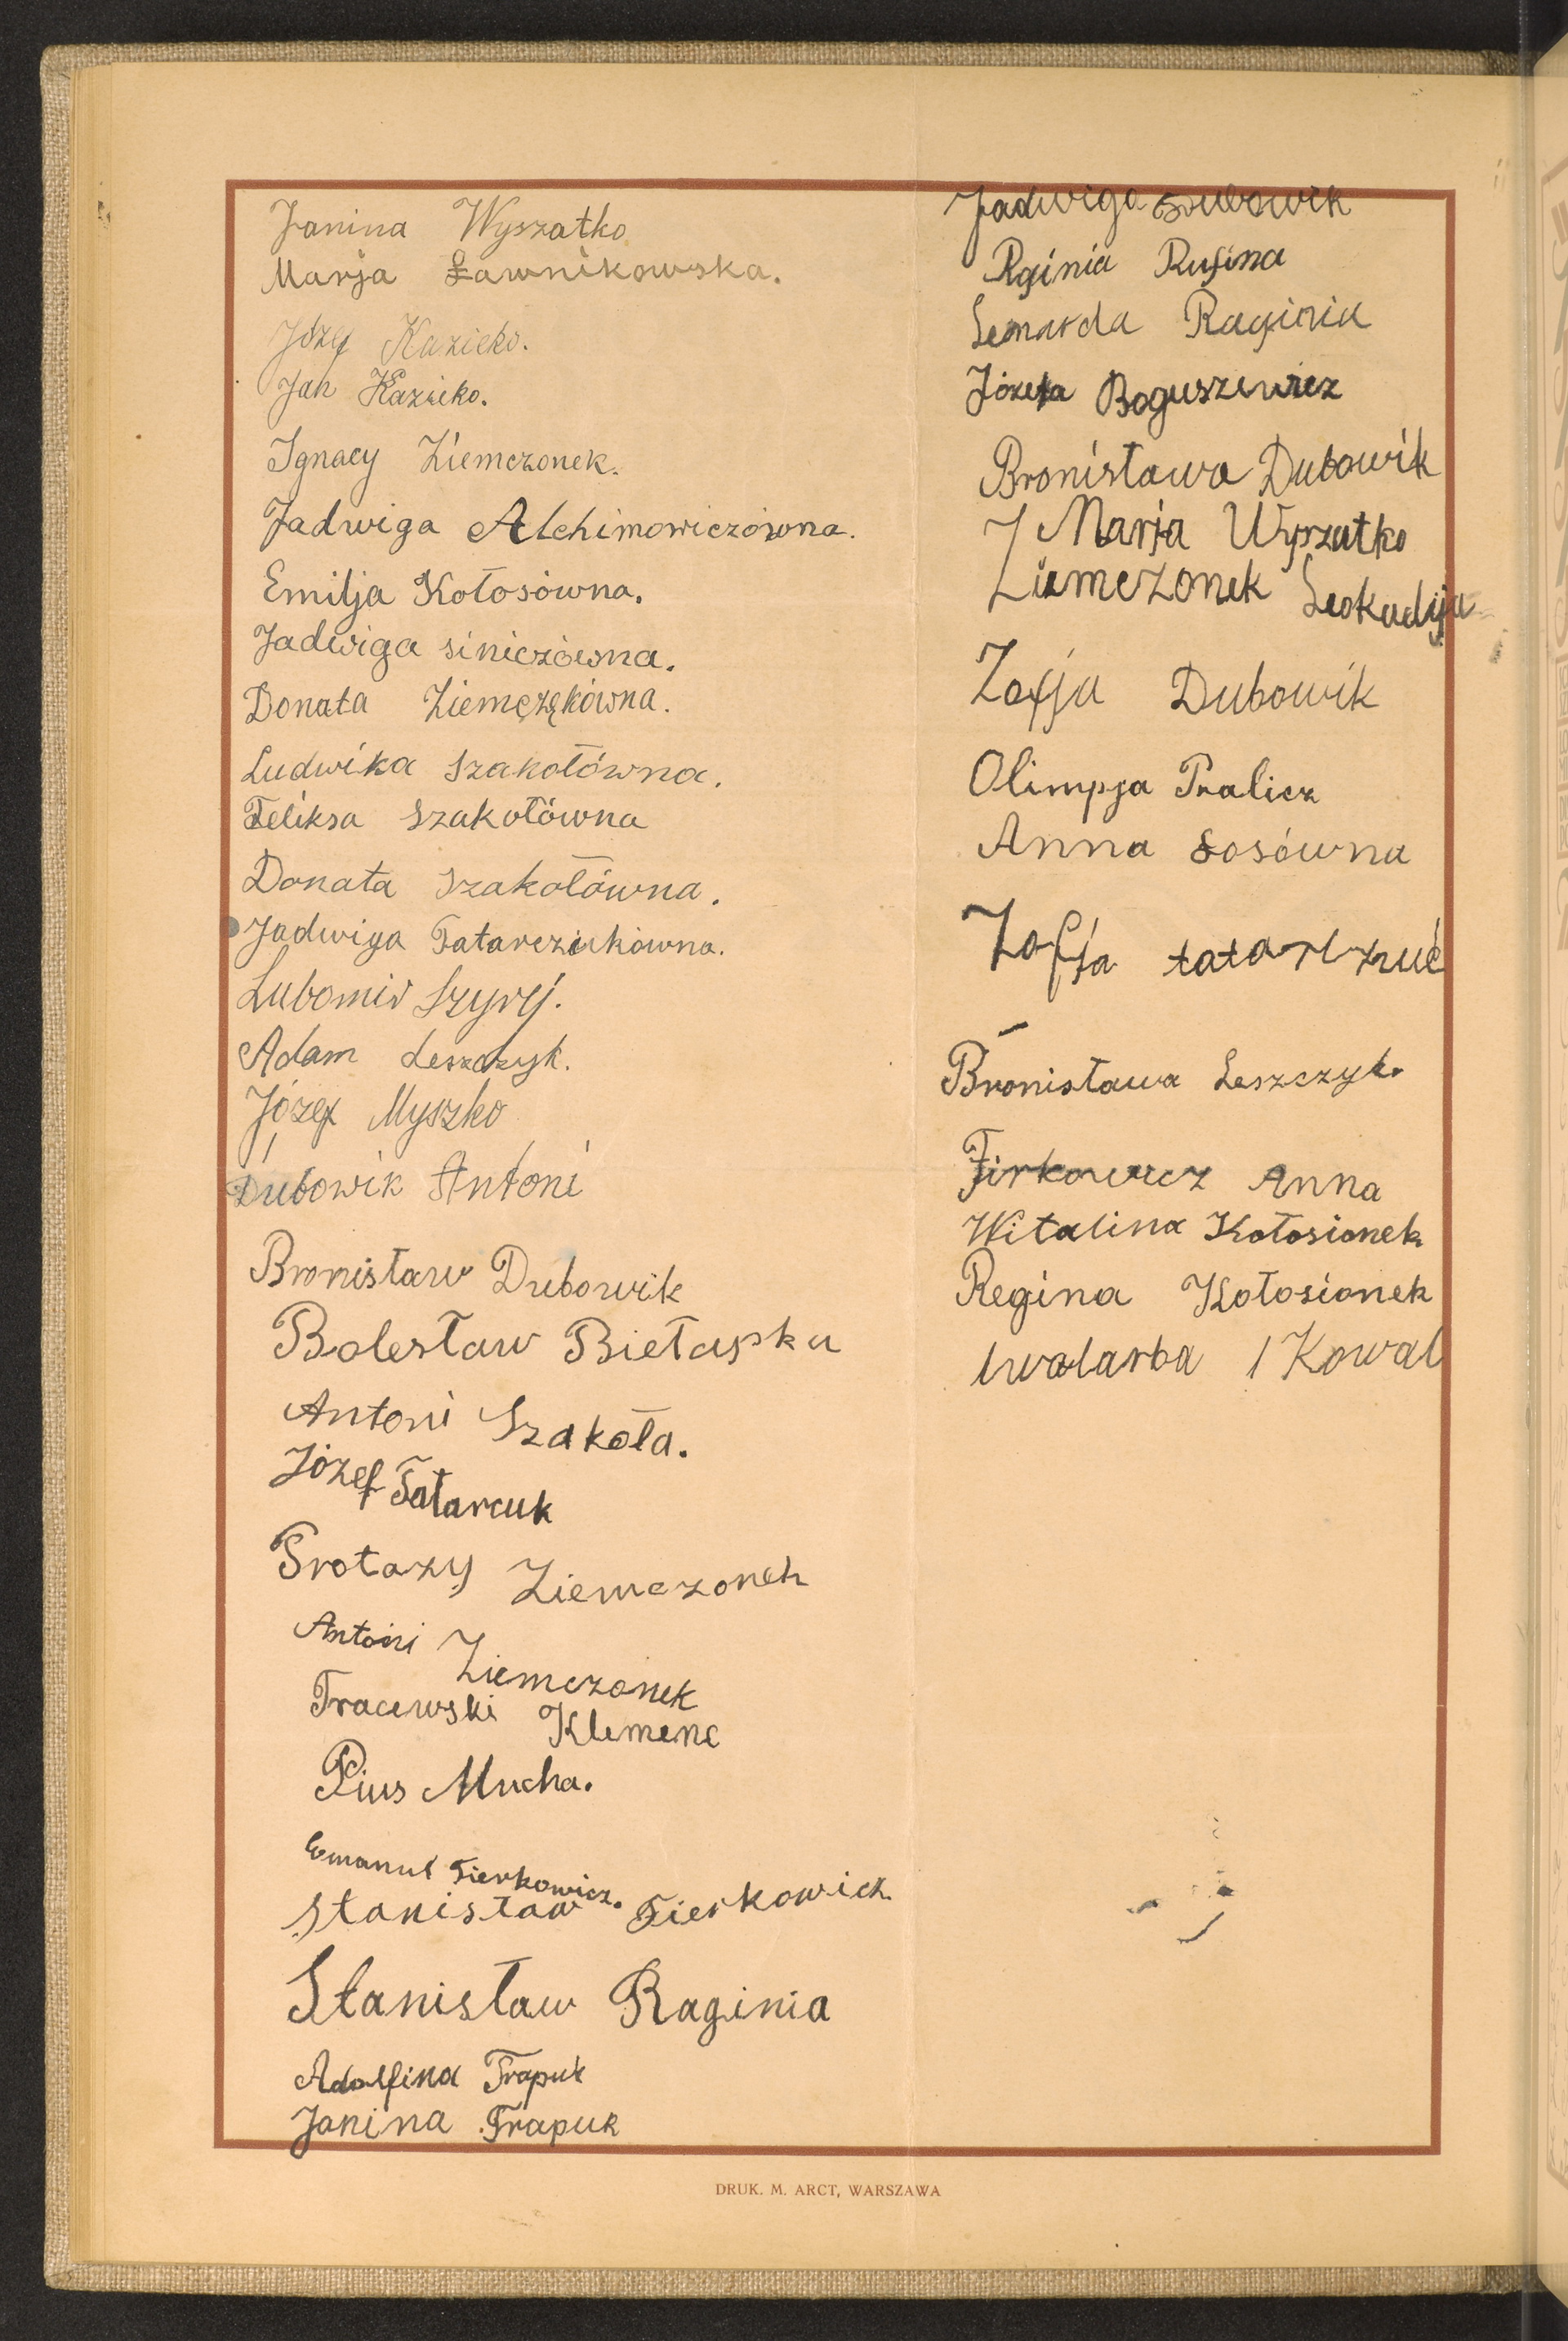 Janina Wyszatko
Marja Ławnikowska.
Józef Kazieko.
Jan Kazieko.
Ignacy Ziemczonek.
Jadwiga Alchimowiczówna.
Emilja Kołosówna.
Jadwiga siniczówna.
Donata Ziemczękówna.
Ludwika Szakołówna.
Feliksa Szakołówna
Donata Szakołówna.
Jadwiga Tatarcziukówna.
Lubomir Szyrej.
Adam Leszczyk.
Józef Myszko
Dubowik Antoni
Bronisław Dubowik
Bolesław Biełapku
Antoni Szakoła.
Józef Tatarcuk
Protazy Ziemczonek
Antoni Ziemczonek
Tracewski Klemenc
Pius Mucha.
Emanul Fierkowicz.
Stanisław Fierkowicz.
Stanisław Raginia
Adolfina Trapuk
Janina Trapuk
Jadwiga Dubowik
Rginia Rufina
Leonarda Raginia
Józefa Boguszewicz
Bronisława Dubowik
Marja Wyszatko
Ziemczonek Leokadija
Zofja Dubowik
Olimpja Pralicz
Anna Łosówna
Zofja tatarczuć
Bronisława Leszczyk.
Firkowicz Anna
Witalina Kołosionek
Regina Kołosionek
Kowal
DRUK. M. ARCT, WARSZAWA